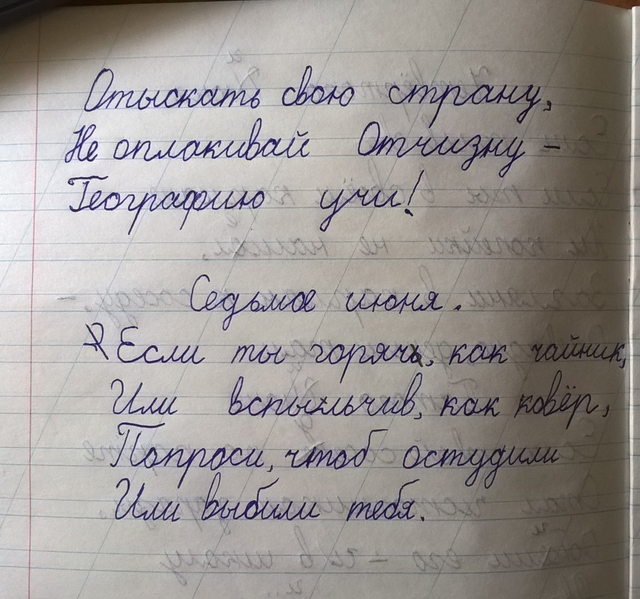 Отыскать свою страну,
Не оплакивай Отчизну –
Географию учи!
Седьмое июня.
Если ты горяч, как чайник,
Или вспыльчив, как ковёр,
Попроси, чтоб остудили
Или выбили тебя.